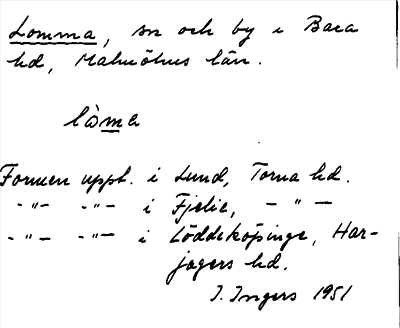 Lomma, sn och by i Bara
hd, Malmöhus län.
låma
Formen uppt. i Lund, Torna hd.
-"- -"- i Fjelie, -"-
-"- -"- i Löddeköpinge, Har-
jagers hd.
I. Ingers 1951